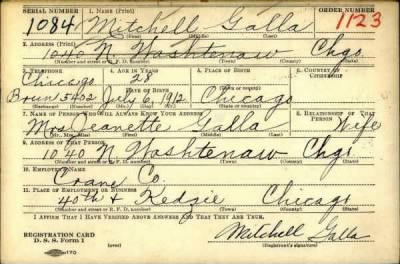 SERIAL NUMBER 1. NAME (Print) ORDER NUMBER
1084 Mitchell Galla 1123
(First) (Middle) (Last)
2. ADDRESS (Print)
1040 N Washtenaw Chgo
(Number and street or R. F. D. number) (Town) (County) (State)
3. TELEPHONE 4. AGE IN YEARS 5. PLACE OF BIRTH 6. COUNTRY OF CITIZENSHIP
Chicago 28
DATE OF BIRTH (Town or county)
5402 July 6, 1912 Chicago
(Exchange) (No.) (Mo.) (Day) (Yr.) (State or country)
7. NAME OF PERSON WHO WILL ALWAYS KNOW YOUR ADDRESS 8. RELATIONSHIP OF THAT PERSON
Jeanette Galla Wife
(Mr., Mrs., Miss) (First) (Middle) (Last)
9. ADDRESS OF THAT PERSON
1040 N Washtenaw Chgo
(Number and street or R. F. D. number) (Town) (County) (State)
10. EMPLOYER'S NAME
Crane Co.
11. PLACE OF EMPLOYMENT OR BUSINESS
40th & Kedzie Chicago
(Number and street or R. F. D. number) (Town) (County) (State)
I AFFIRM THAT I HAVE VERIFIED ABOVE ANSWERS AND THAT THEY ARE TRUE.
REGISTRATION CARD Mitchell Galla
D. S. S. Form 1 (Registrant's signature)
(over)